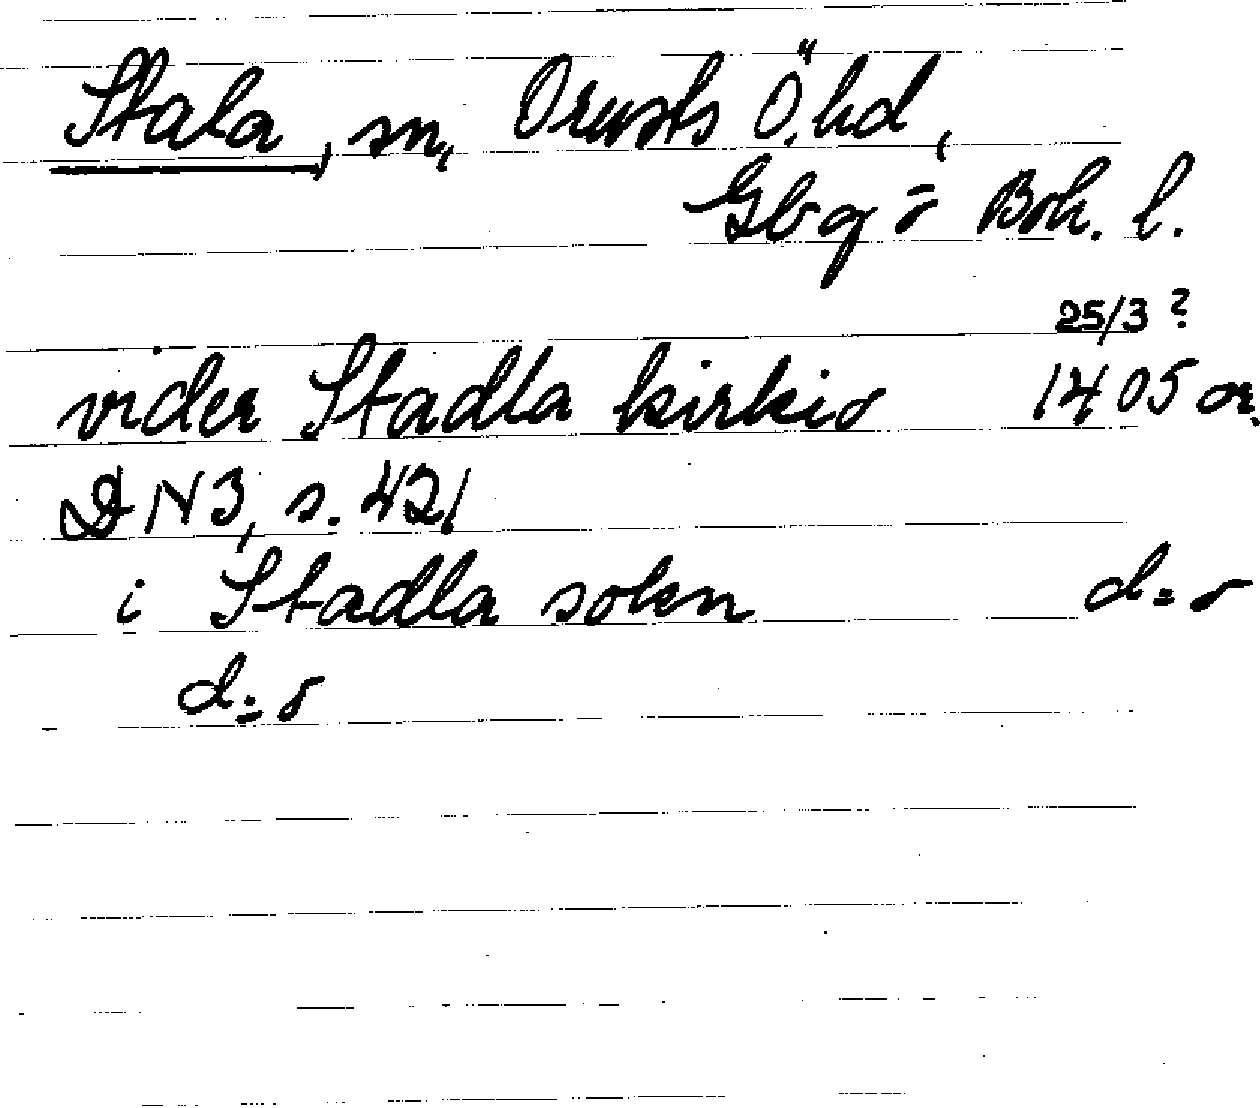 Stala, sn, Orusts Ö. hd,
Gbg o Boh. l.
25/3 ?
vider Stadla kirkio 1405 or.
DN 3, s. 421
i Stadla sokn d:o
d:o